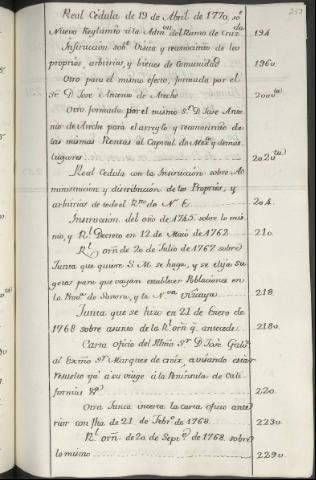 257
Real Cédula de 19 de Abril de 1770. sõe
Nuevo Reglamto. a la Admon. del Ramo de Cruzda. 194
Instruccion sobe. Visita y reconocimto. de los
proprios, arbitrios, y bienes de Comunidad 196v.
Otro para el mismo efecto, formada por el
Sr. D. José Antonio de Areche 200vta.
Otro formada por el mismo Sr. D. José Anto-
nio de Areche para el arreglo y reconocimto. de
las mismas Rentas al Capital de Mexo. y demas
lugares 202vta.
Real Cedula con la Instruccion sobre Ad-
ministracion y distribucion de los Proprios, y
arbitrios de todo el Rno. de Na. E. 204.
Instruccion del año de 1745. sobre lo mis-
mo, y Rl. Decreto en 12. de Maio de 1762. 210.
Rl. orñ. de 20 de Julio de 1767. sobre
Junta que quiere S. M. se haga, y se elija Su-
getos para que vayan establecer Poblaciones en
la Prova. de Sonora, y la Nva. Vizcaya 218.
Junta que se hizo en 21 de Enero de
1768 sobre asunto de la Rl. orñ. q. antecede. 218v.
Carta oficio del Illmo. Sr. D. José Galvz.
al Exmo. Sr. Marques de Croix, avisando estar
resuelto ya á su viage á la Peninsula de Cali-
fornias 220.
Otra Junta inserta la carta oficio ante-
rior con fha. de 21. de Febo. de 1768. 223v.
Rl. orñ. de 20. de Sepre. de 1768. sobre
lo mismo 229v.